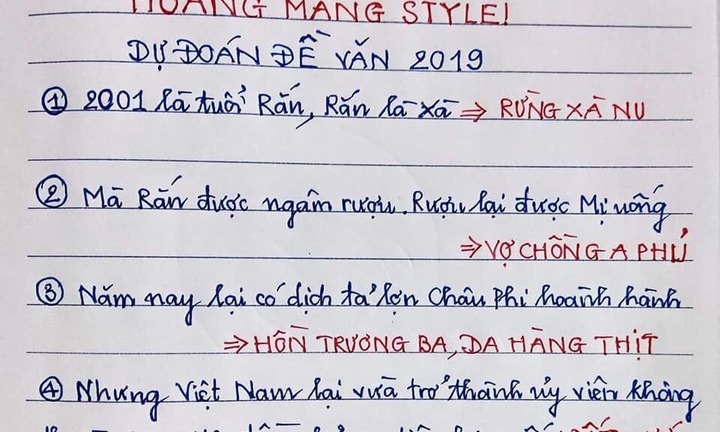 HOANG MANG STYLE!
DỰ ĐOÁN ĐỀ VĂN 2019
① 2001 là tuổi Rắn, Rắn là xà ⇒ RỪNG XÀ NU
② Mà Rắn được ngâm rượu. Rượu lại được Mị uống
⇒ VỢ CHỒNG A PHỦ
③ Năm nay lại có dịch tả lợn Châu Phi hoành hành
⇒ HỒN TRƯƠNG BA, DA HÀNG THỊT
④ Nhưng Việt Nam lại vừa trở thành ủy viên không